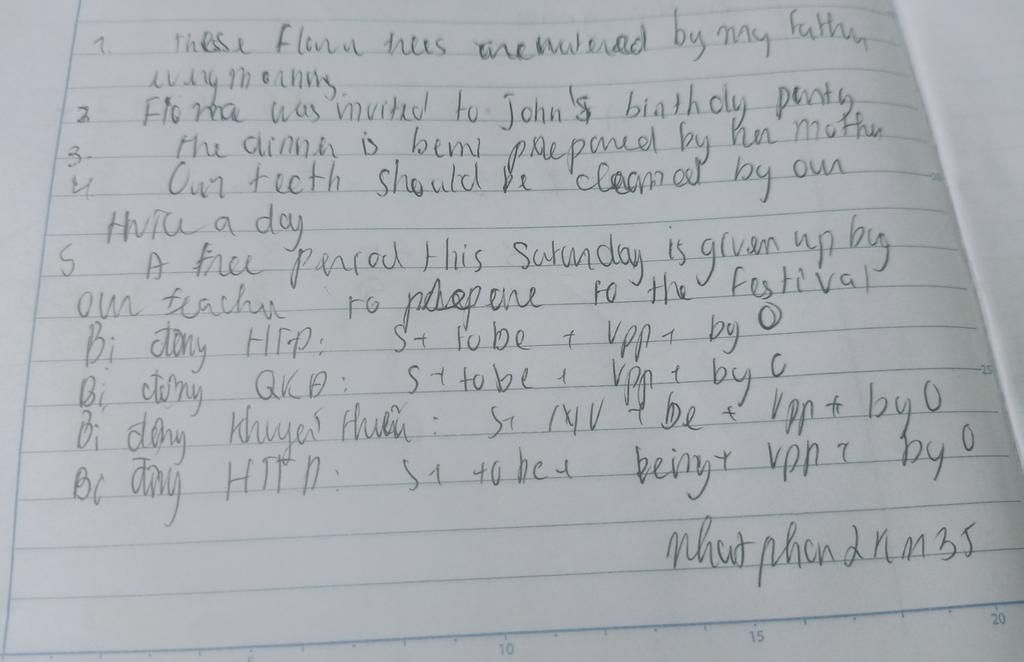 1. These Flower trees are watered by my Father
every morning
2 Fiona was invited to John's birthdy party
3. the dinner is being prepared by her mother
4. Our teeth should be cleaned by our
twice a day
5 A free period this Saturday is given up by
our teacher to prepare to the Festival
Bị động HTĐ: S+ to be + Vpp+ by O
Bị động QKĐ: S+ to be + Vpp+ by O
Bị động khuyết thiếu: S+ MV + be + Vpp+ by O
Bị động HTTD: S+ to be+ being+ Vpp+ by O
10 15 20 25